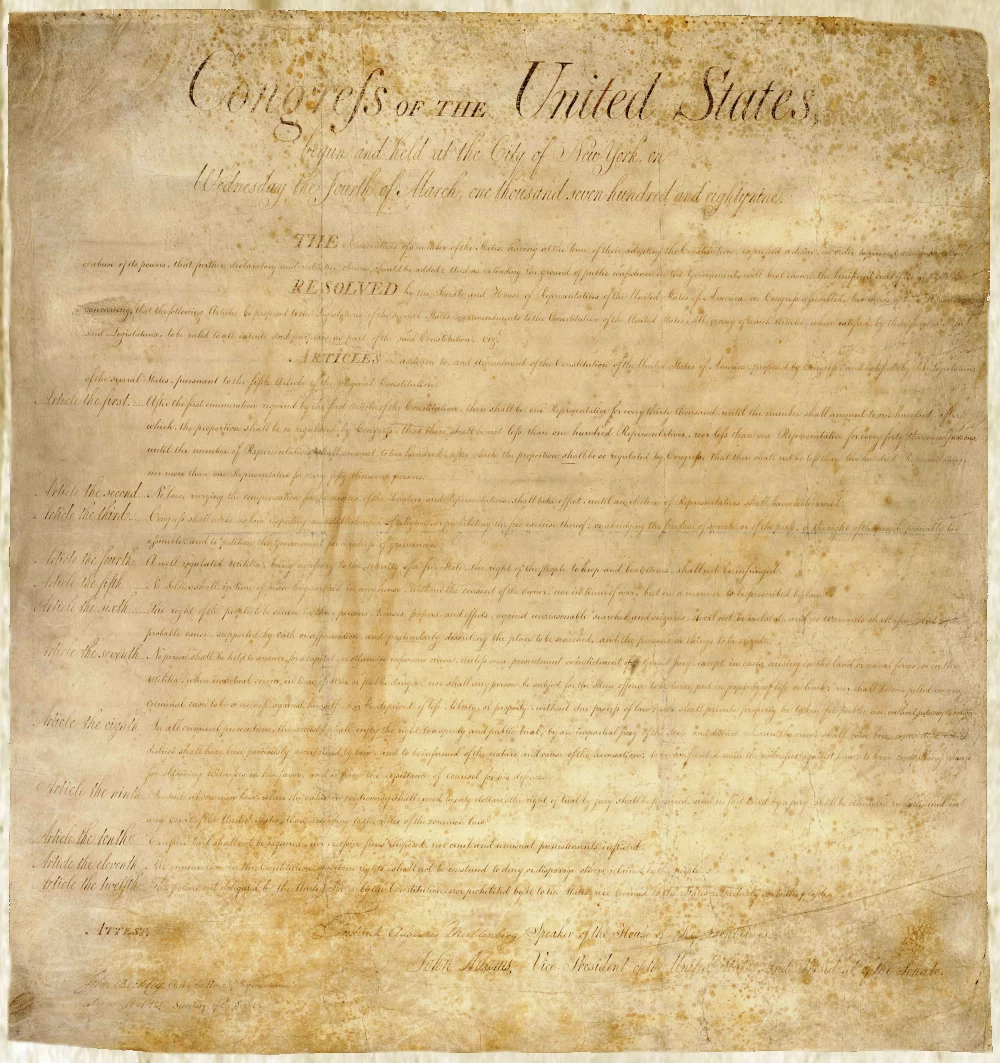 Congress OF THE United States,
begun and held at the City of New York, on
Wednesday the fourth of March, one thousand seven hundred and eighty nine.
THE Conventions of a number of the States, having at the time of their adopting the Constitution, expressed a desire, in order to prevent misconstruction
or abuse of its powers, that further declaratory and restrictive clauses should be added: And as extending the ground of public confidence in the Government, will best ensure the beneficent ends of its institution.
RESOLVED by the Senate and House of Representatives of the United States of America, in Congress assembled, two thirds of both Houses
concurring, that the following Articles be proposed to the Legislatures of the several States, as amendments to the Constitution of the United States, all, or any of which Articles, when ratified by three fourths of the
said Legislatures, to be valid to all intents and purposes, as part of the said Constitution; vizt.
ARTICLES in addition to, and Amendment of the Constitution of the United States of America, proposed by Congress, and ratified by the Legislatures
of the several States, pursuant to the fifth Article of the original Constitution.
Article the first... After the first enumeration required by the first Article of the Constitution, there shall be one Representative for every thirty thousand, until the number shall amount to one hundred, after
which, the proportion shall be so regulated by Congress, that there shall be not less than one hundred Representatives, nor less than one Representative for every forty thousand persons,
until the number of Representatives shall amount to two hundred, after which the proportion shall be so regulated by Congress, that there shall not be less than two hundred Representatives,
nor more than one Representative for every fifty thousand persons.
Article the second... No law, varying the compensation for the services of the Senators and Representatives, shall take effect, until an election of Representatives shall have intervened.
Article the third... Congress shall make no law respecting an establishment of religion, or prohibiting the free exercise thereof; or abridging the freedom of speech, or of the press; or the right of the people peaceably to
assemble, and to petition the Government for a redress of grievances.
Article the fourth... A well regulated Militia, being necessary to the security of a free State, the right of the people to keep and bear Arms, shall not be infringed.
Article the fifth... No Soldier shall, in time of peace be quartered in any house, without the consent of the Owner, nor in time of war, but in a manner to be prescribed by law.
Article the sixth... The right of the people to be secure in their persons, houses, papers, and effects, against unreasonable searches and seizures, shall not be violated, and no Warrants shall issue, but upon
probable cause, supported by Oath or affirmation, and particularly describing the place to be searched, and the persons or things to be seized.
Article the seventh... No person shall be held to answer for a capital, or otherwise infamous crime, unless on a presentment or indictment of a Grand Jury, except in cases arising in the land or naval forces, or in the
Militia, when in actual service in time of War or public danger; nor shall any person be subject for the same offence to be twice put in jeopardy of life or limb; nor shall be compelled in any
criminal case to be a witness against himself, nor be deprived of life, liberty, or property, without due process of law; nor shall private property be taken for public use, without just compensation.
Article the eighth... In all criminal prosecutions, the accused shall enjoy the right to a speedy and public trial, by an impartial jury of the State and district wherein the crime shall have been committed, which
district shall have been previously ascertained by law, and to be informed of the nature and cause of the accusation; to be confronted with the witnesses against him; to have compulsory process
for obtaining witnesses in his favor, and to have the assistance of Counsel for his defence.
Article the ninth... In suits at common law, where the value in controversy shall exceed twenty dollars, the right of trial by jury shall be preserved, and no fact tried by a jury, shall be otherwise re-examined in
any Court of the United States, than according to the rules of the common law.
Article the tenth... Excessive bail shall not be required, nor excessive fines imposed, nor cruel and unusual punishments inflicted.
Article the eleventh... The enumeration in the Constitution, of certain rights, shall not be construed to deny or disparage others retained by the people.
Article the twelfth... The powers not delegated to the United States by the Constitution, nor prohibited by it to the States, are reserved to the States respectively, or to the people.
ATTEST,
Frederick Augustus Muhlenberg Speaker of the House of Representatives.
John Adams, Vice President of the United States, and President of the Senate.
John Beckley, Clerk of the House of Representatives.
Secretary of the Senate.